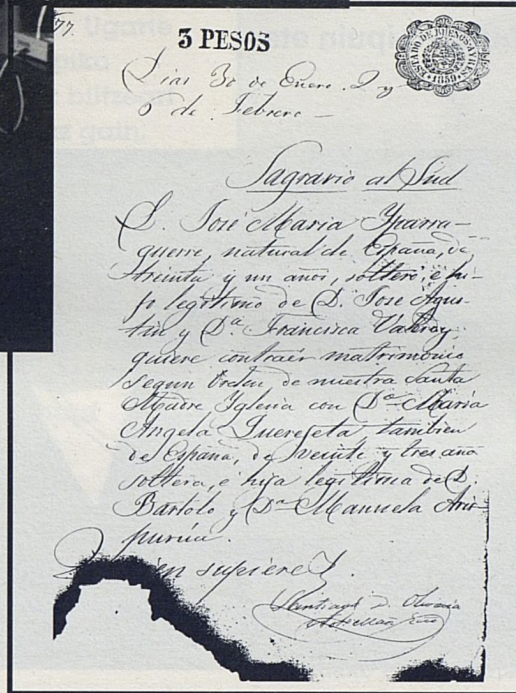 77.
3 PESOS
1859
Dias 30 de Enero 2 y
6 de Febrero
Sagrario al Sud
D. José Maria Yparra-
guerre, natural de España, de
treinta y un años, soltero, é hi-
jo legitimo de D. José Agus-
tin y Dª Francisca
quiere contraer matrimonio
segun orden de nuestra Santa
Madre Yglesia con Dª Maria
Angela Querejeta tambien
de España, de veinte y tres años
soltera, é hija legitima de D.
Bartolo y Dª Manuela Aris-
purúa.
Quien supiere &.
Santiago